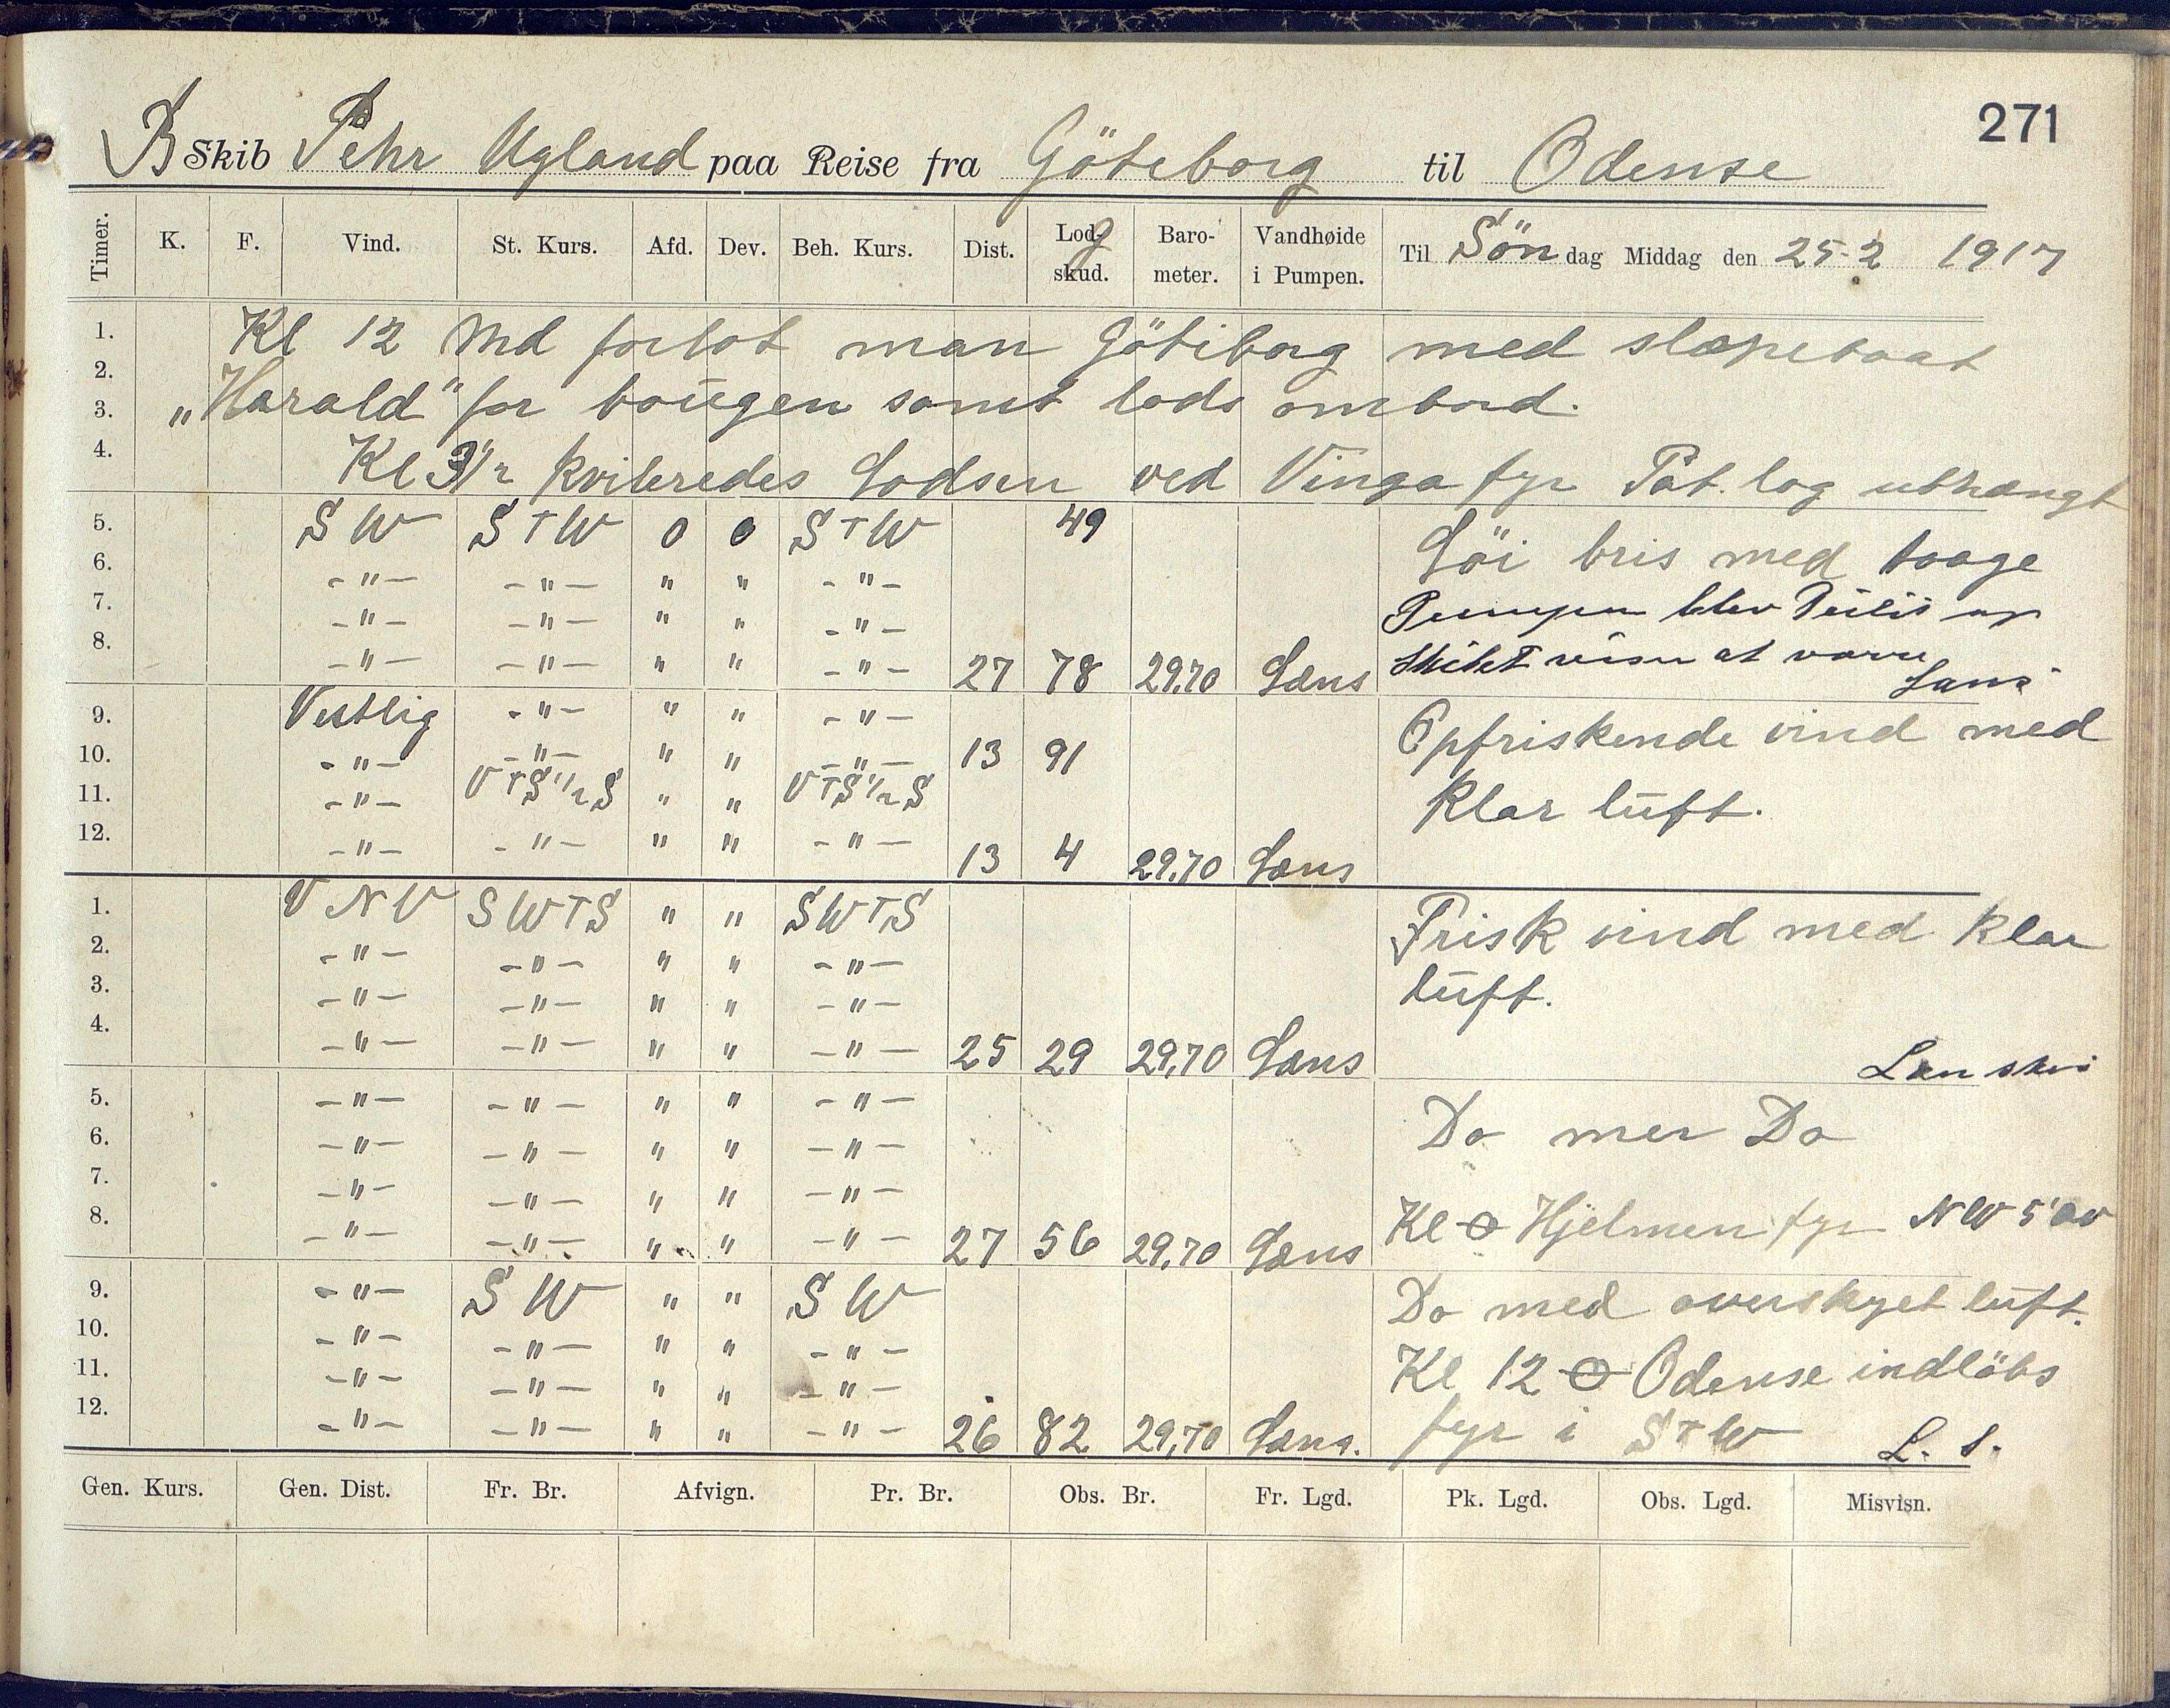 271
B Skib Pehr Ugland paa Reise fra Göteborg til Odense
Timer. K. F. Vind. St. Kurs. Afd. Dev. Beh. Kurs. Dist. Log skud. Baro-meter. Vandhøide i Pumpen. Til Søndag Middag den 25-2 1917
1. Kl 12 Md forlot man Göteborg med slæpebaat
2.
3. „Harald" for bougen samt lods ombord.
4. Kl 3 1/2 kviteredes Lodsen ved Vinga fyr Pat. log uthængt
5. S W S T W 0 0 S T W 49 Löi bris med taage
6. -"- -"- " " -"-
7. -"- -"- " " -"- Pumpen blev Peilit og
8. -"- -"- " " -"- 27 78 29.70 Læns Skibet at være Læns
9. Vestlig -"- " " -"- Opfriskende vind med
10. -"- -"- " " -"- 13 91
11. -"- V T S 1/2 S " " V T S 1/2 S klar luft.
12. -"- -"- " " -"- 13 4 29.70 Læns
1. V N V S W T S " " S W T S Frisk vind med klar
2. -"- -"- " " -"-
3. -"- -"- " " -"- luft.
4. -"- -"- " " -"- 25 29 29,70 Læns Læn
5. -"- -"- " " -"- Do mer Do
6. -"- -"- " " -"-
7. -"- -"- " " -"-
8. -"- -"- " " -"- 27 56 29,70 Læns Kl Hjelmen fyr NW 5' av
9. -"- S W " " S W Do med overskyet luft.
10. -"- -"- " " -"-
11. -"- -"- " " -"- Kl 12 Odense indlöbs
12. -"- -"- " " -"- 26 82 29,70 Læns. fyr i S T W L. S.
Gen. Kurs. Gen. Dist. Fr. Br. Afvign. Pr. Br. Obs. Br. Fr. Lgd. Pk. Lgd. Obs. Lgd. Misvisn.